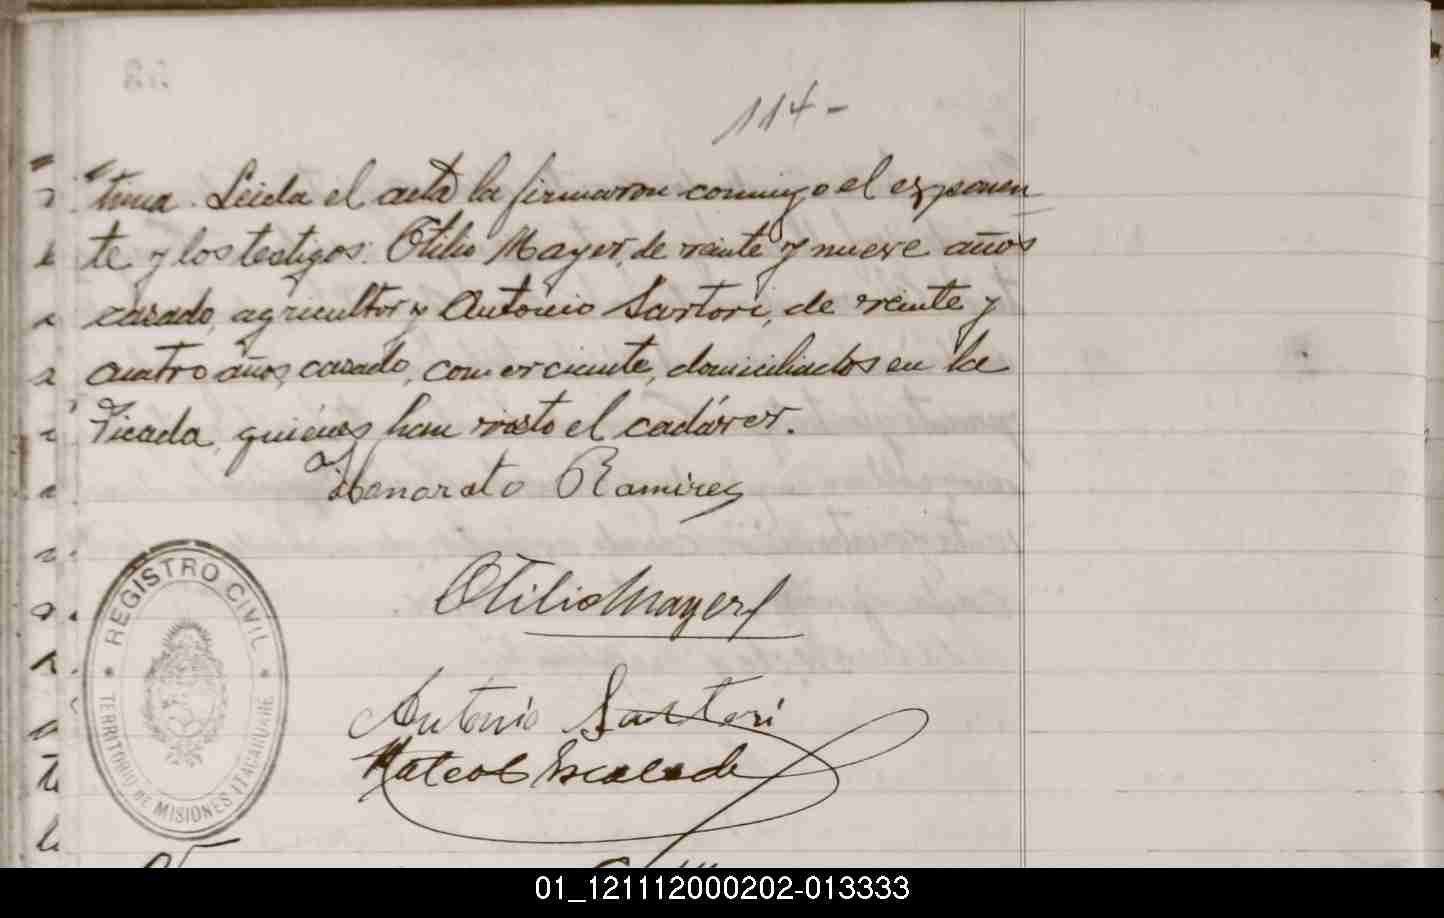 114-
tima. Leida el acta la firmaron conmigo el exponen
te y los testigos: Otilio Mayer, de veinte y nueve años
casado, agricultor y Antonio Sartori, de veinte y
cuatro años, casado, comerciante, domiciliados en la
Picada, quiénes han visto el cadáver.
Honorato Ramirez
Otilio Mayer
Antonio Sartori
Mateo Escalada
REGISTRO CIVIL
TERRITORIO DE MISIONES ITACARUARE
01_121112000202-013333